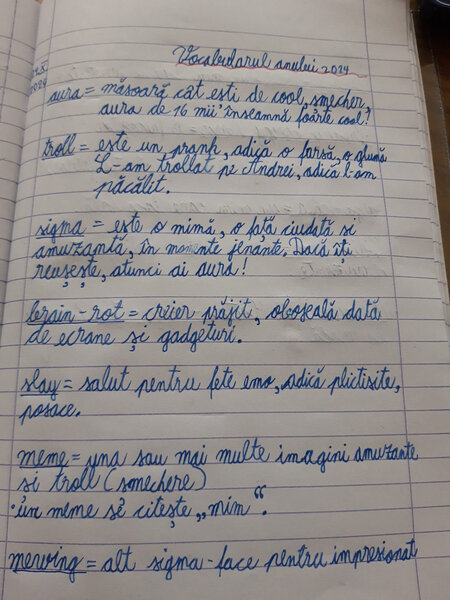 Vocabularul anului 2024
aura = măsoară cât esti de cool, smecher,
aura de 16 mii înseamnă foarte cool!
troll = este un prank, adică o farsă, o glumă
L-am trollat pe Andrei, adică l-am
păcălit.
sigma = este o mimă, o față ciudată si
amuzantă, în momente jenante. Dacă îți
reușește, atunci ai aura!
brain-rot = creier prăjit, oboseală dată
de ecrane și gadgeturi.
slay = salut pentru fete emo, adică plictisite,
posace.
meme = una sau mai multe imagini amuzante
si troll (smechere)
·un meme se citește „mim“.
mewing = alt sigma-face pentru impresionat